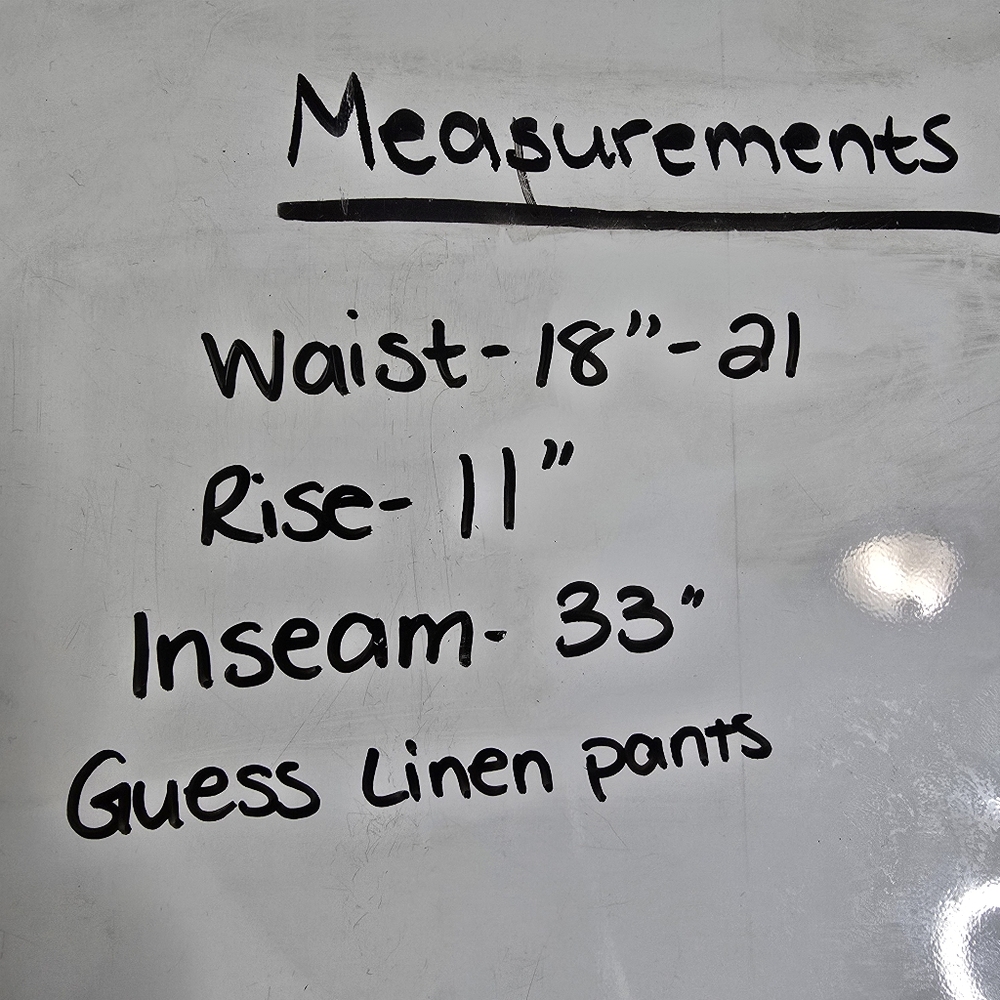 Measurements
Waist-18"-21
Rise-11"
Inseam- 33"
Guess Linen pants